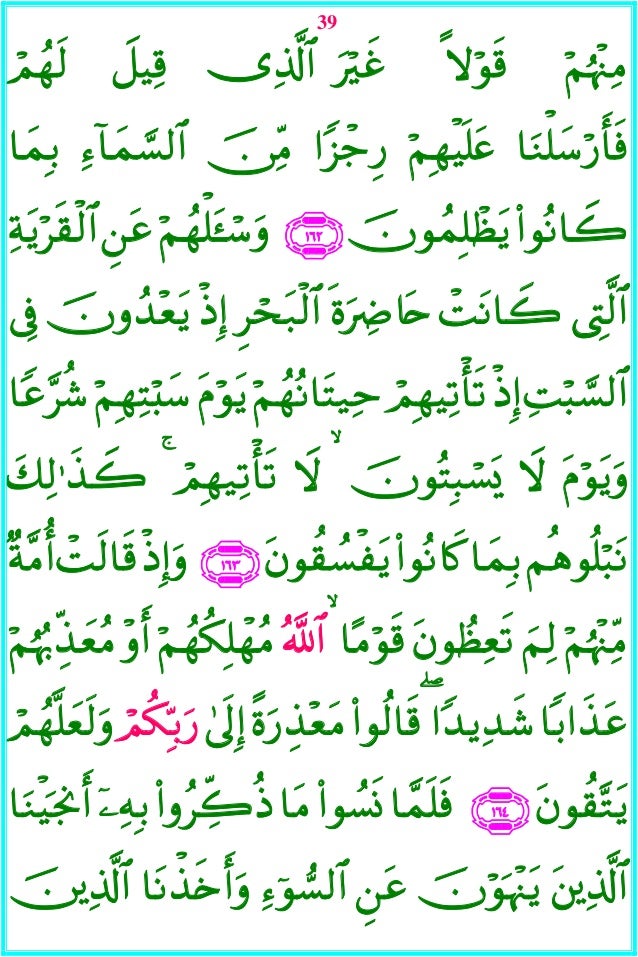 39
مِنْهُمْ قَوْلًا غَيْرَ ٱلَّذِى قِيلَ لَهُمْ
فَأَرْسَلْنَا عَلَيْهِمْ رِجْزًا مِّنَ ٱلسَّمَآءِ بِمَا
كَانُوا۟ يَظْلِمُونَ ١٦٢ وَسْـَٔلْهُمْ عَنِ ٱلْقَرْيَةِ
ٱلَّتِى كَانَتْ حَاضِرَةَ ٱلْبَحْرِ إِذْ يَعْدُونَ فِى
ٱلسَّبْتِ إِذْ تَأْتِيهِمْ حِيتَانُهُمْ يَوْمَ سَبْتِهِمْ شُرَّعًا
وَيَوْمَ لَا يَسْبِتُونَ ۙ لَا تَأْتِيهِمْ ۚ كَذَٰلِكَ
نَبْلُوهُم بِمَا كَانُوا۟ يَفْسُقُونَ ١٦٣ وَإِذْ قَالَتْ أُمَّةٌ
مِّنْهُمْ لِمَ تَعِظُونَ قَوْمًا ۙ ٱللَّهُ مُهْلِكُهُمْ أَوْ مُعَذِّبُهُمْ
عَذَابًا شَدِيدًا ۖ قَالُوا۟ مَعْذِرَةً إِلَىٰ رَبِّكُمْ وَلَعَلَّهُمْ
يَتَّقُونَ ١٦٤ فَلَمَّا نَسُوا۟ مَا ذُكِّرُوا۟ بِهِۦٓ أَنجَيْنَا
ٱلَّذِينَ يَنْهَوْنَ عَنِ ٱلسُّوٓءِ وَأَخَذْنَا ٱلَّذِينَ